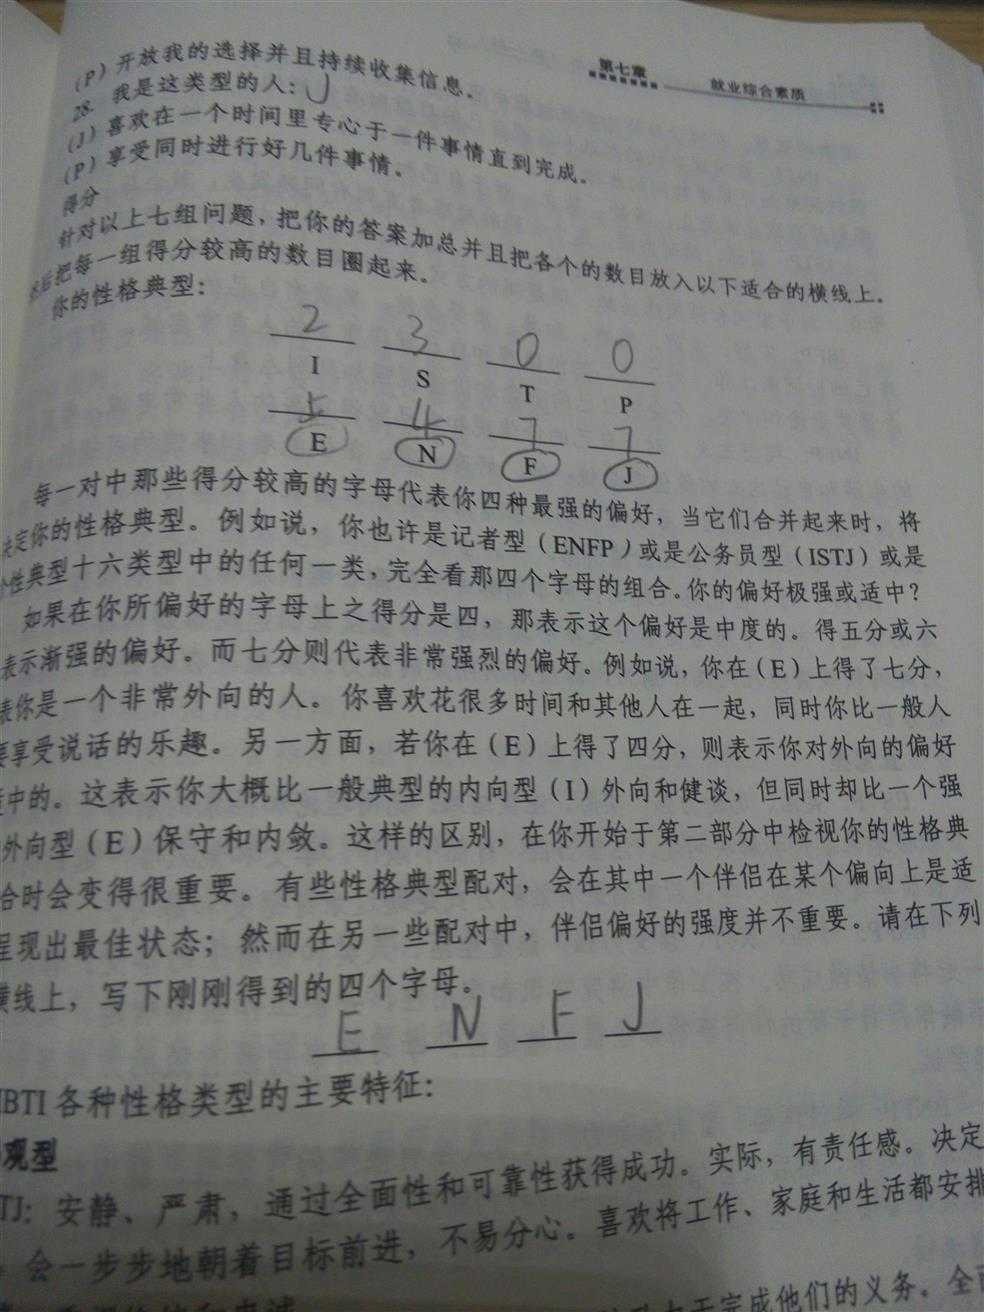 第七章
就业综合素质
(P)开放我的选择并且持续收集信息。
28. 我是这类型的人: J
(J)喜欢在一个时间里专心于一件事情直到完成。
(P)享受同时进行好几件事情。
得分
针对以上七组问题,把你的答案加总并且把各个的数目放入以下适合的横线上。
后把每一组得分较高的数目圈起来。
你的性格典型:
2 3 0 0
I S T P
5 4 7 7
E N F J
每一对中那些得分较高的字母代表你四种最强的偏好,当它们合并起来时,将
决定你的性格典型。例如说,你也许是记者型(ENFP)或是公务员型(ISTJ)或是
性典型十六类型中的任何一类,完全看那四个字母的组合。你的偏好极强或适中?
如果在你所偏好的字母上之得分是四,那表示这个偏好是中度的。得五分或六
表示渐强的偏好。而七分则代表非常强烈的偏好。例如说,你在(E)上得了七分,
表你是一个非常外向的人。你喜欢花很多时间和其他人在一起,同时你比一般人
享受说话的乐趣。另一方面,若你在(E)上得了四分,则表示你对外向的偏好
中的。这表示你大概比一般典型的内向型(I)外向和健谈,但同时却比一个强
外向型(E)保守和内敛。这样的区别,在你开始于第二部分中检视你的性格典
合时会变得很重要。有些性格典型配对,会在其中一个伴侣在某个偏向上是适
呈现出最佳状态;然而在另一些配对中,伴侣偏好的强度并不重要。请在下列
横线上,写下刚刚得到的四个字母。
E N F J
BTI各种性格类型的主要特征:
观型
TJ:安静、严肃,通过全面性和可靠性获得成功。实际,有责任感。决定
会一步步地朝着目标前进,不易分心。喜欢将工作、家庭和生活都安排
于完成他们的义务。全